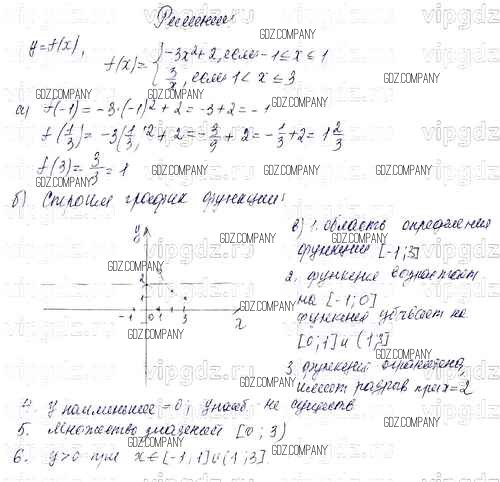 Решение
y=f(x),
f(x)= { -3x²+2, если -1≤x≤1
3/x, если 1<x≤3
а) f(-1) = -3·(-1)²+2 = -3+2 = -1
f(1/3) = -3(1/3)²+2 = -3/9+2 = -1/3+2 = 1 2/3
f(3) = 3/3 = 1
б) Строим график функции:
y
2
1
-1 0 1 3 x
в) 1. область определения
функции [-1;3]
2. функция возрастает
на [-1;0]
функция убывает на
[0;1] и (1;3]
3. функция ограничена,
имеет разрыв при x=2
4. y наименьшее =0; y наиб. не существ
5. Множество значений [0;3)
6. y>0 при x∈[-1,1]∪(1;3]
GDZ.COMPANY
vipgdz.ru